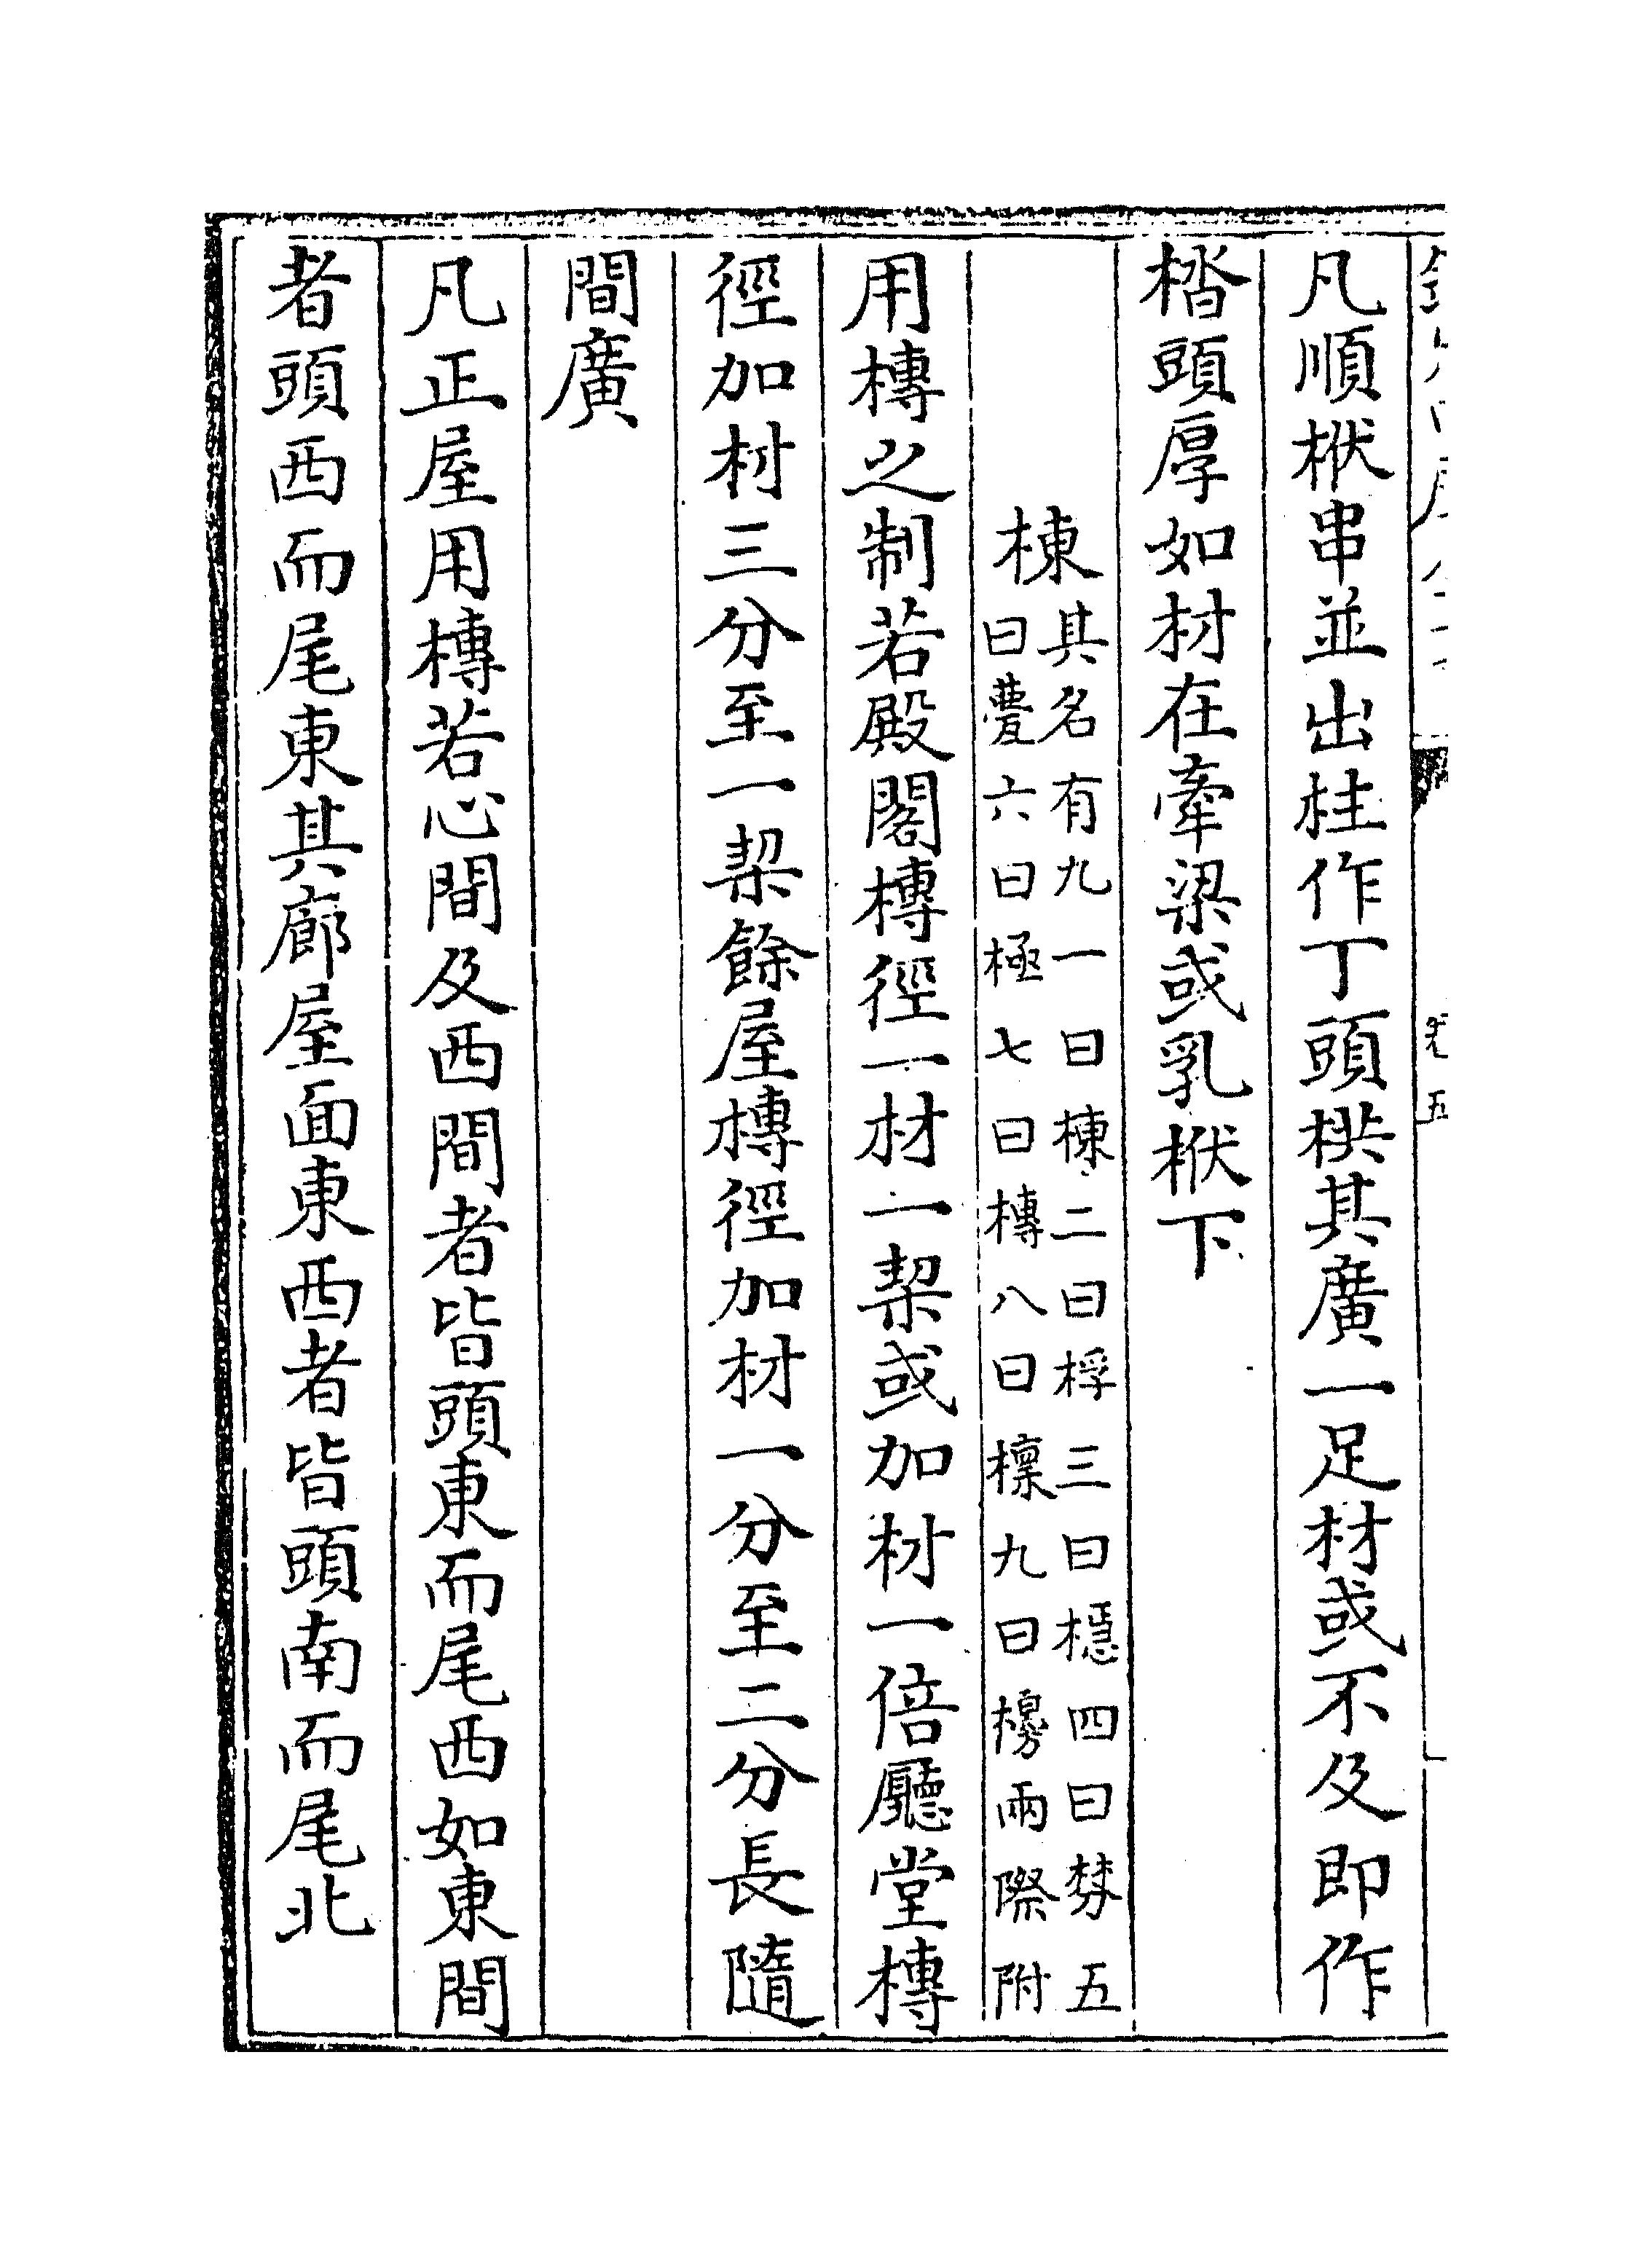 凡順栿串並出柱作丁頭栱其廣一足材或不及即作
楷頭厚如材在牽梁或乳栿下
棟其名有九一曰棟二曰桴三曰檼四曰棼五
曰甍六曰極七曰槫八曰檁九曰櫋兩際附
用槫之制若殿閣槫徑一材一栔或加材一倍廳堂槫
徑加材三分至一栔餘屋槫徑加材一分至二分長隨
間廣
凡正屋用槫若心間及西間者皆頭東而尾西如東間
者頭西而尾東其廊屋面東西者皆頭南而尾北
卷五